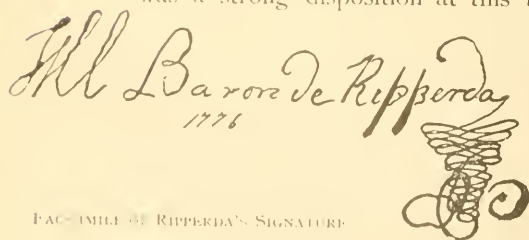 was a strong disposition at this
Baron de Ripperda
1776
FAC-SIMILE OF RIPPERDA'S SIGNATURE